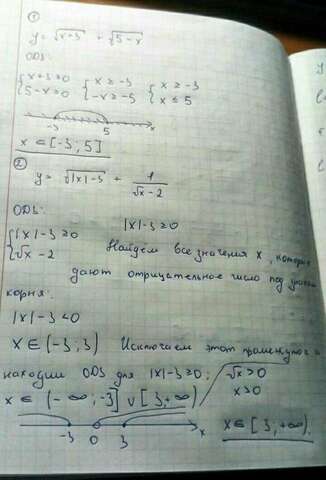 ①
y = √x+3 + √5-x
ОДЗ:
{x+3≥0 {x ≥ -3 {x ≥ -3
{5-x≥0 {-x ≥ -5 {x ≤ 5
-3 5 x
x ∈ [-3; 5]
②
y = √|x|-3 + 1/√x-2
ОДЗ: |x|-3 ≥0
{|x|-3 ≥0 Найдём все значения x, которые
{√x - 2 дают отрицательное число под знаком
корня:
|x|-3 <0
x ∈ (-3; 3) Исключаем этот промежуток и
находим ОДЗ для |x|-3 ≥0; √x >0
x ∈ (-∞; -3] ∪ [3; +∞) x>0
-3 0 3 x x ∈ [3, +∞).